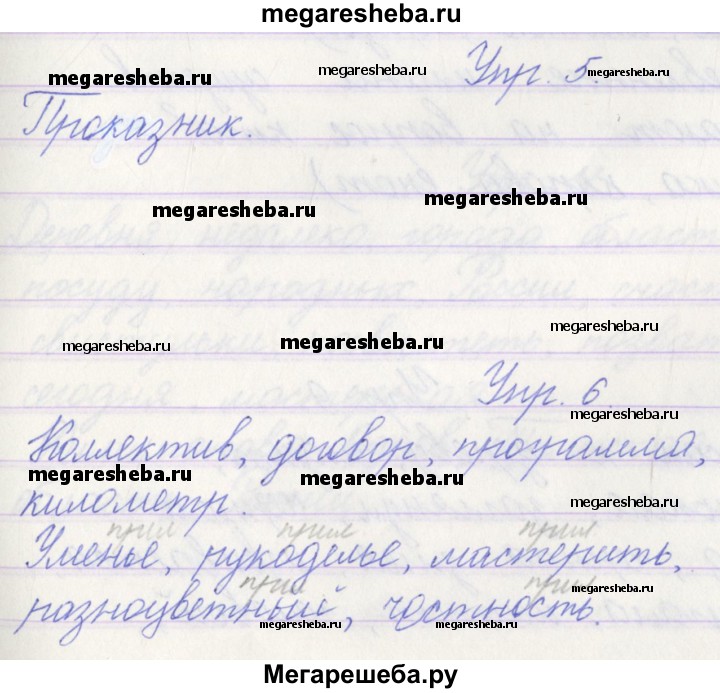 megaresheba.ru
Упр. 5.
megaresheba.ru megaresheba.ru megaresheba.ru
Проказник.
megaresheba.ru megaresheba.ru
megaresheba.ru
megaresheba.ru megaresheba.ru
Упр. 6.
megaresheba.ru
Коллектив, договор, программа,
megaresheba.ru megaresheba.ru
километр.
megaresheba.ru
прил прил прил
Уменье, рукоделье, мастерить,
прил прил
megaresheba.ru
разноцветный, честность.
megaresheba.ru megaresheba.ru
Мегарешеба.ру